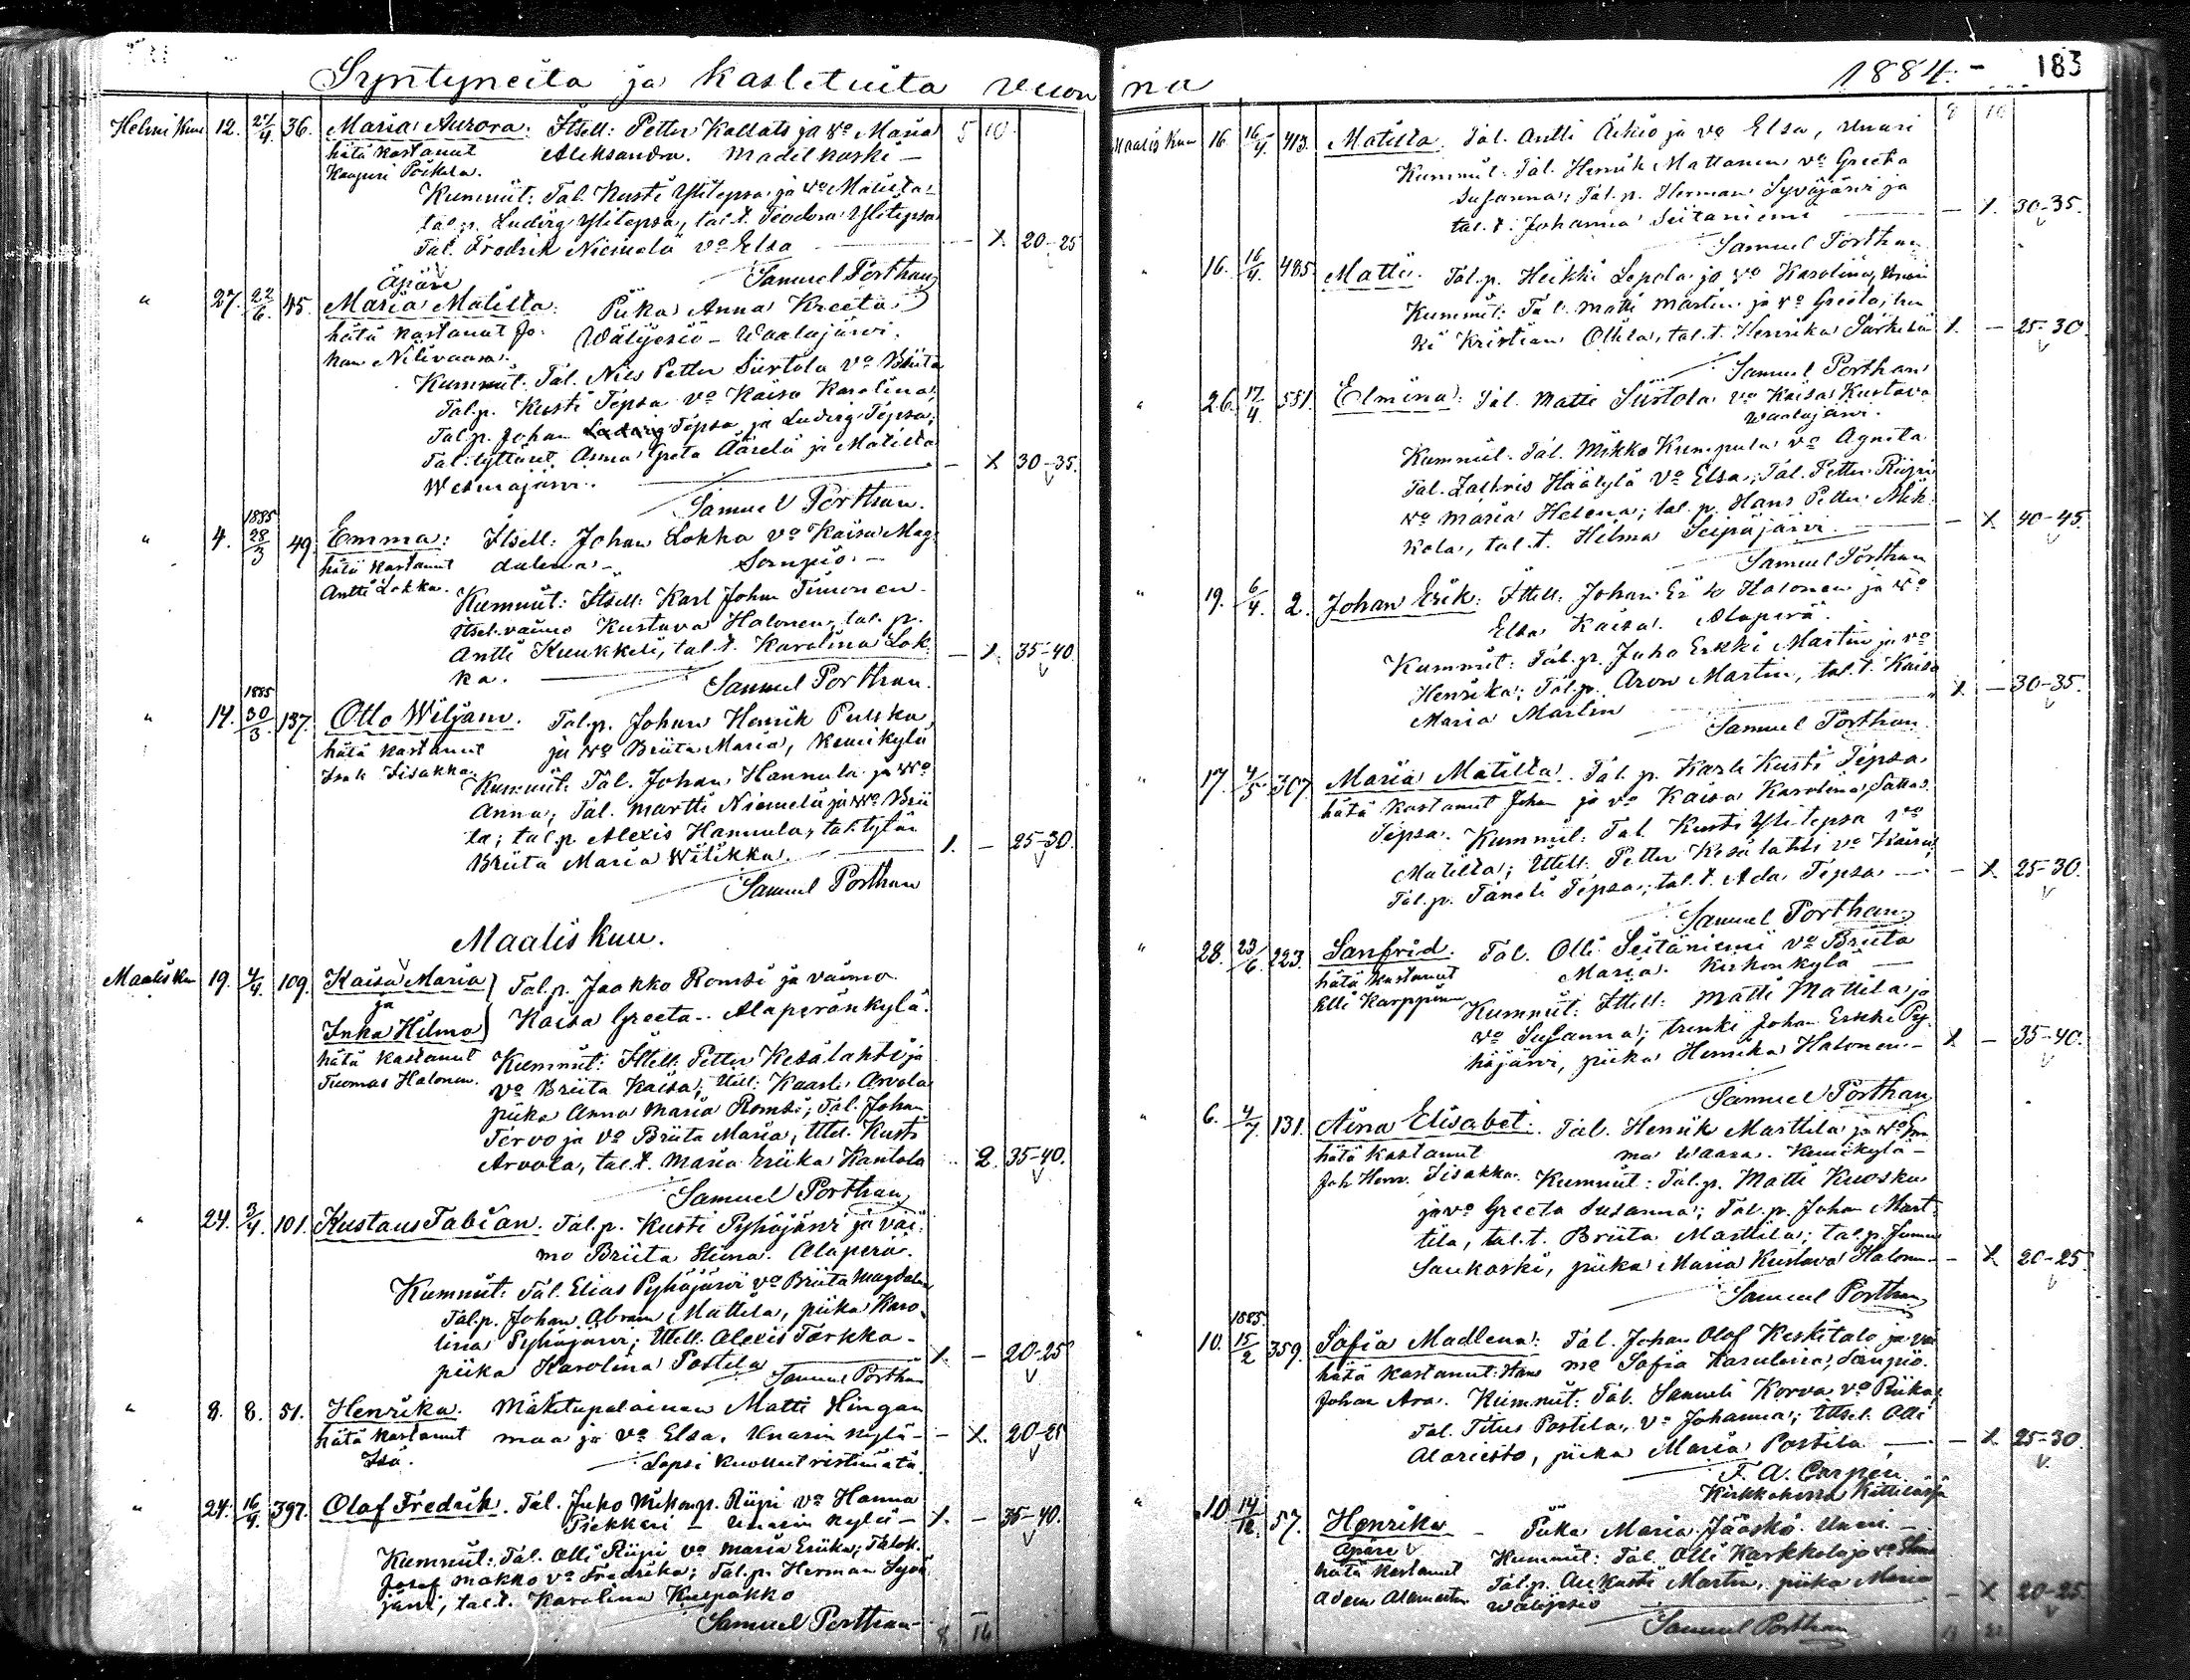 Syntyneita ja kastetuita vuonna 1884.- 183
Helmi kuu 12. 27/4. 36. Maria Aurora: Itsell: Petter Kallats ja vo Maria 5 10
hätä kastanut Aleksandra. Madetkoski -
Kaapri Poikela.
Kummit: Tal. Kusti Ylitepsa ja vo Matilta
tal.p. Ludvig Ylitepsa, tal.t. Teodora Ylitepsa
Tal. Fredrik Niemelä vo Elsa - X 20-25
Samuel Porthan
Äpäre
" 27. 22/6. 45. Maria Matilta: Piika Anna Kreeta
hätä kastanut Jo- Wäljesiö - Waalajärvi.
han Nilivaara.
Kummit: Tal. Nils Petter Siirtola vo Briita
Tal.p. Kusti Tepsa vo Kaisa Karolina,
Tal.p. Johan Ludvig Tepsa ja Ludvig Tepsa,
Tal. tyttäret Anna Greta Äärelä ja Matilta
Welmajärvi. - X 30-35.
Samuel Porthan.
" 4. 1885 28/3 49. Emma: Itsell: Johan Lokka vo Kaisa Mag-
hätä kastanut dalena - Sompio. -
Antti Lokka.
Kummit: Itsell: Karl Johan Timonen
itsel. vaimo Kustava Halonen, tal. p.
Antti Kuukkeli, tal.t. Karolina Lok-
ka. - X. 35-40
Samuel Porthan.
" 14. 1885 30/3 137. Otto Wiljam. Tal.p. Johan Henrik Pulska
hätä kastanut ja vo Briita Maria, Kemikylä
Isak Iisakka.
Kummit: Tal. Johan Hannula ja vo
Anna, Tal. Martti Niemelä ja vo Brii
ta; tal.p. Alexis Hannula, tal. tytär
Briita Maria Wiikka. 1. - 25-30.
Samuel Porthan
Maaliskuu.
Maalisku 19. 4/4. 109. Kaisa Maria Tal.p. Jaakko Romsi ja vaimo
ja Kaisa Greeta - Alaperänkylä.
Inka Hilma
hätä kastanut Kummit: Itsell: Petter Kesälahti ja
Tuomas Halonen. vo Briita Kaisa; Itell: Kaarle Arvola
piika Anna Maria Romsi; Tal. Johan
Tervo ja vo Briita Maria, Itel. Kusti
Arvola, tal.t. Maria Eriika Kantola .. 2. 35-40.
Samuel Porthan
" 24. 3/4. 101. Kustaus Fabian. Tal.p. Kusti Pyhäjärvi ja vai-
mo Briita Stina. Alaperä.
Kummit: Tal. Elias Pyhäjärvi vo Briita Magdalen
Tal.p. Johan Abram Mattila, piika Karo-
lina Pyhäjärvi; Itell. Alexis Tarkka-
piika Karolina Postila 1. - 20-25
Samuel Porthan
" 8. 8. 51. Henrika. Mäkitupalainen Matti Hingan
hätä kastanut maa ja vo Elsa. Unarin kylä - - X. 20-25
Isä. Lapsi kuollut ristimätä.
" 24. 16/4. 397. Olof Fredrik. Tal. Juho Mikonp. Riipi vo Hanna
Piekkari - Unarin kylä - 1. - 35-40.
Kummit: Tal. Olli Riipi vo Maria Eriika; Talok.
Josef Makko vo Fredrika; Tal.p. Herman Syvä
järvi, tal.t. Karolina Kulpakko
Samuel Porthan -
8 16
8 10
Maalis Kuu 16 16/4. 413. Matilta. Tal. Antti Äikiö ja vo Elsa, Unari
Kummit: Tal. Henrik Mattanen vo Greeta
Susanna; Tal.p. Herman Syväjärvi ja
tal.t. Johanna Seitaniemi - 1. 30-35.
Samuel Porthan
" 16. 16/4. 485. Matti. Tal.p. Heikki Lepola ja vo Karolina, Unari
Kummit: Tal. Matti Martin ja vo Greeta; tren
ki Kristian Ollila, tal.t. Henrika Särkelä 1. - 25-30.
Samuel Porthan
" 26. 17/4. 551. Elmina. Tal. Matti Siirtola vo Kaisa Kustava
Waalajärvi.
Kummit. Tal. Mikko Kumpula vo Agneta
Tal. Zachris Häätylä vo Elsa; Tal. Petter Riipi
vo Maria Helena; tal. p. Hans Petter Alik-
kola, tal.t. Hilma Seipäjärvi. - X 40-45.
Samuel Porthan
" 19. 6/4. 2. Johan Erik: Itell. Johan Er Halonen ja vo
Elsa Kaisa. Alaperä.
Kummit: Tal.p. Juho Erkki Martin ja vo
Henrika; Tal.p. Aron Martin, tal.t. Kaisa
Maria Martin X. - 30-35.
Samuel Porthan.
" 17. 4/5 307. Maria Matilta. Tal. p. Karle Kusti Tepsa
hätä kastanut Johan ja vo Kaisa Karolina, Satta.
Tepsa. Kummit: Tal. Kusti Ylitepsa vo
Matilta; Itell: Petter Kesälahti vo Kaisa;
Tal.p. Taneli Tepsa; tal.t. Ada Tepsa - X. 25-30.
Samuel Porthan.
" 28. 23/6. 223. Sanfrid. Tal. Olli Seitäniemi vo Briita
hätä kastanut Maria. Kirkonkylä
Elli Karppinen
Kummit: Itell: Matti Mattila ja
vo Susanna; trenki Johan Erkki Py-
häjärvi, piika Henrika Halonen - X - 35-40.
Samuel Porthan
" 6. 4/7. 131. Aina Elisabet. Tal. Henrik Marttila ja vo Em
hätä kastanut ma Waara. Kemikylä -
Joh. Henr. Iisakka. Kummit: Tal.p. Matti Kuosku
ja vo Greeta Susanna; Tal.p. Johan Mart-
tila, tal.t. Briita Marttila; tal.p. 
Saukoski, piika Maria Kustava Halonen - X 20-25
Samuel Porthan
" 10. 1885. 15/2 359. Sofia Madlena: Tal. Johan Olof Keskitalo ja vai
hätä kastanut Hans mo Sofia Karolina, Sompio.
Johan Ara. Kummit: Tal. Samuli Korva vo Riika;
Tal. Titus Postila, vo Johanna; Itsel. Olli
Alariesto, piika Maria Postila - X 25-30.
F. A. Carpén
Kirkkoherra Kittilässä
" 10 14/12. 57. Henrika - Piika Maria Jääskö. Unari -
Äpäre Kummit: Tal. Olli Karkkola ja vo
hätä kastanut Tal.p. Aukusti Martin, piika Maria
Adam Wälipsiö - X 20-25
Samuel Porthan